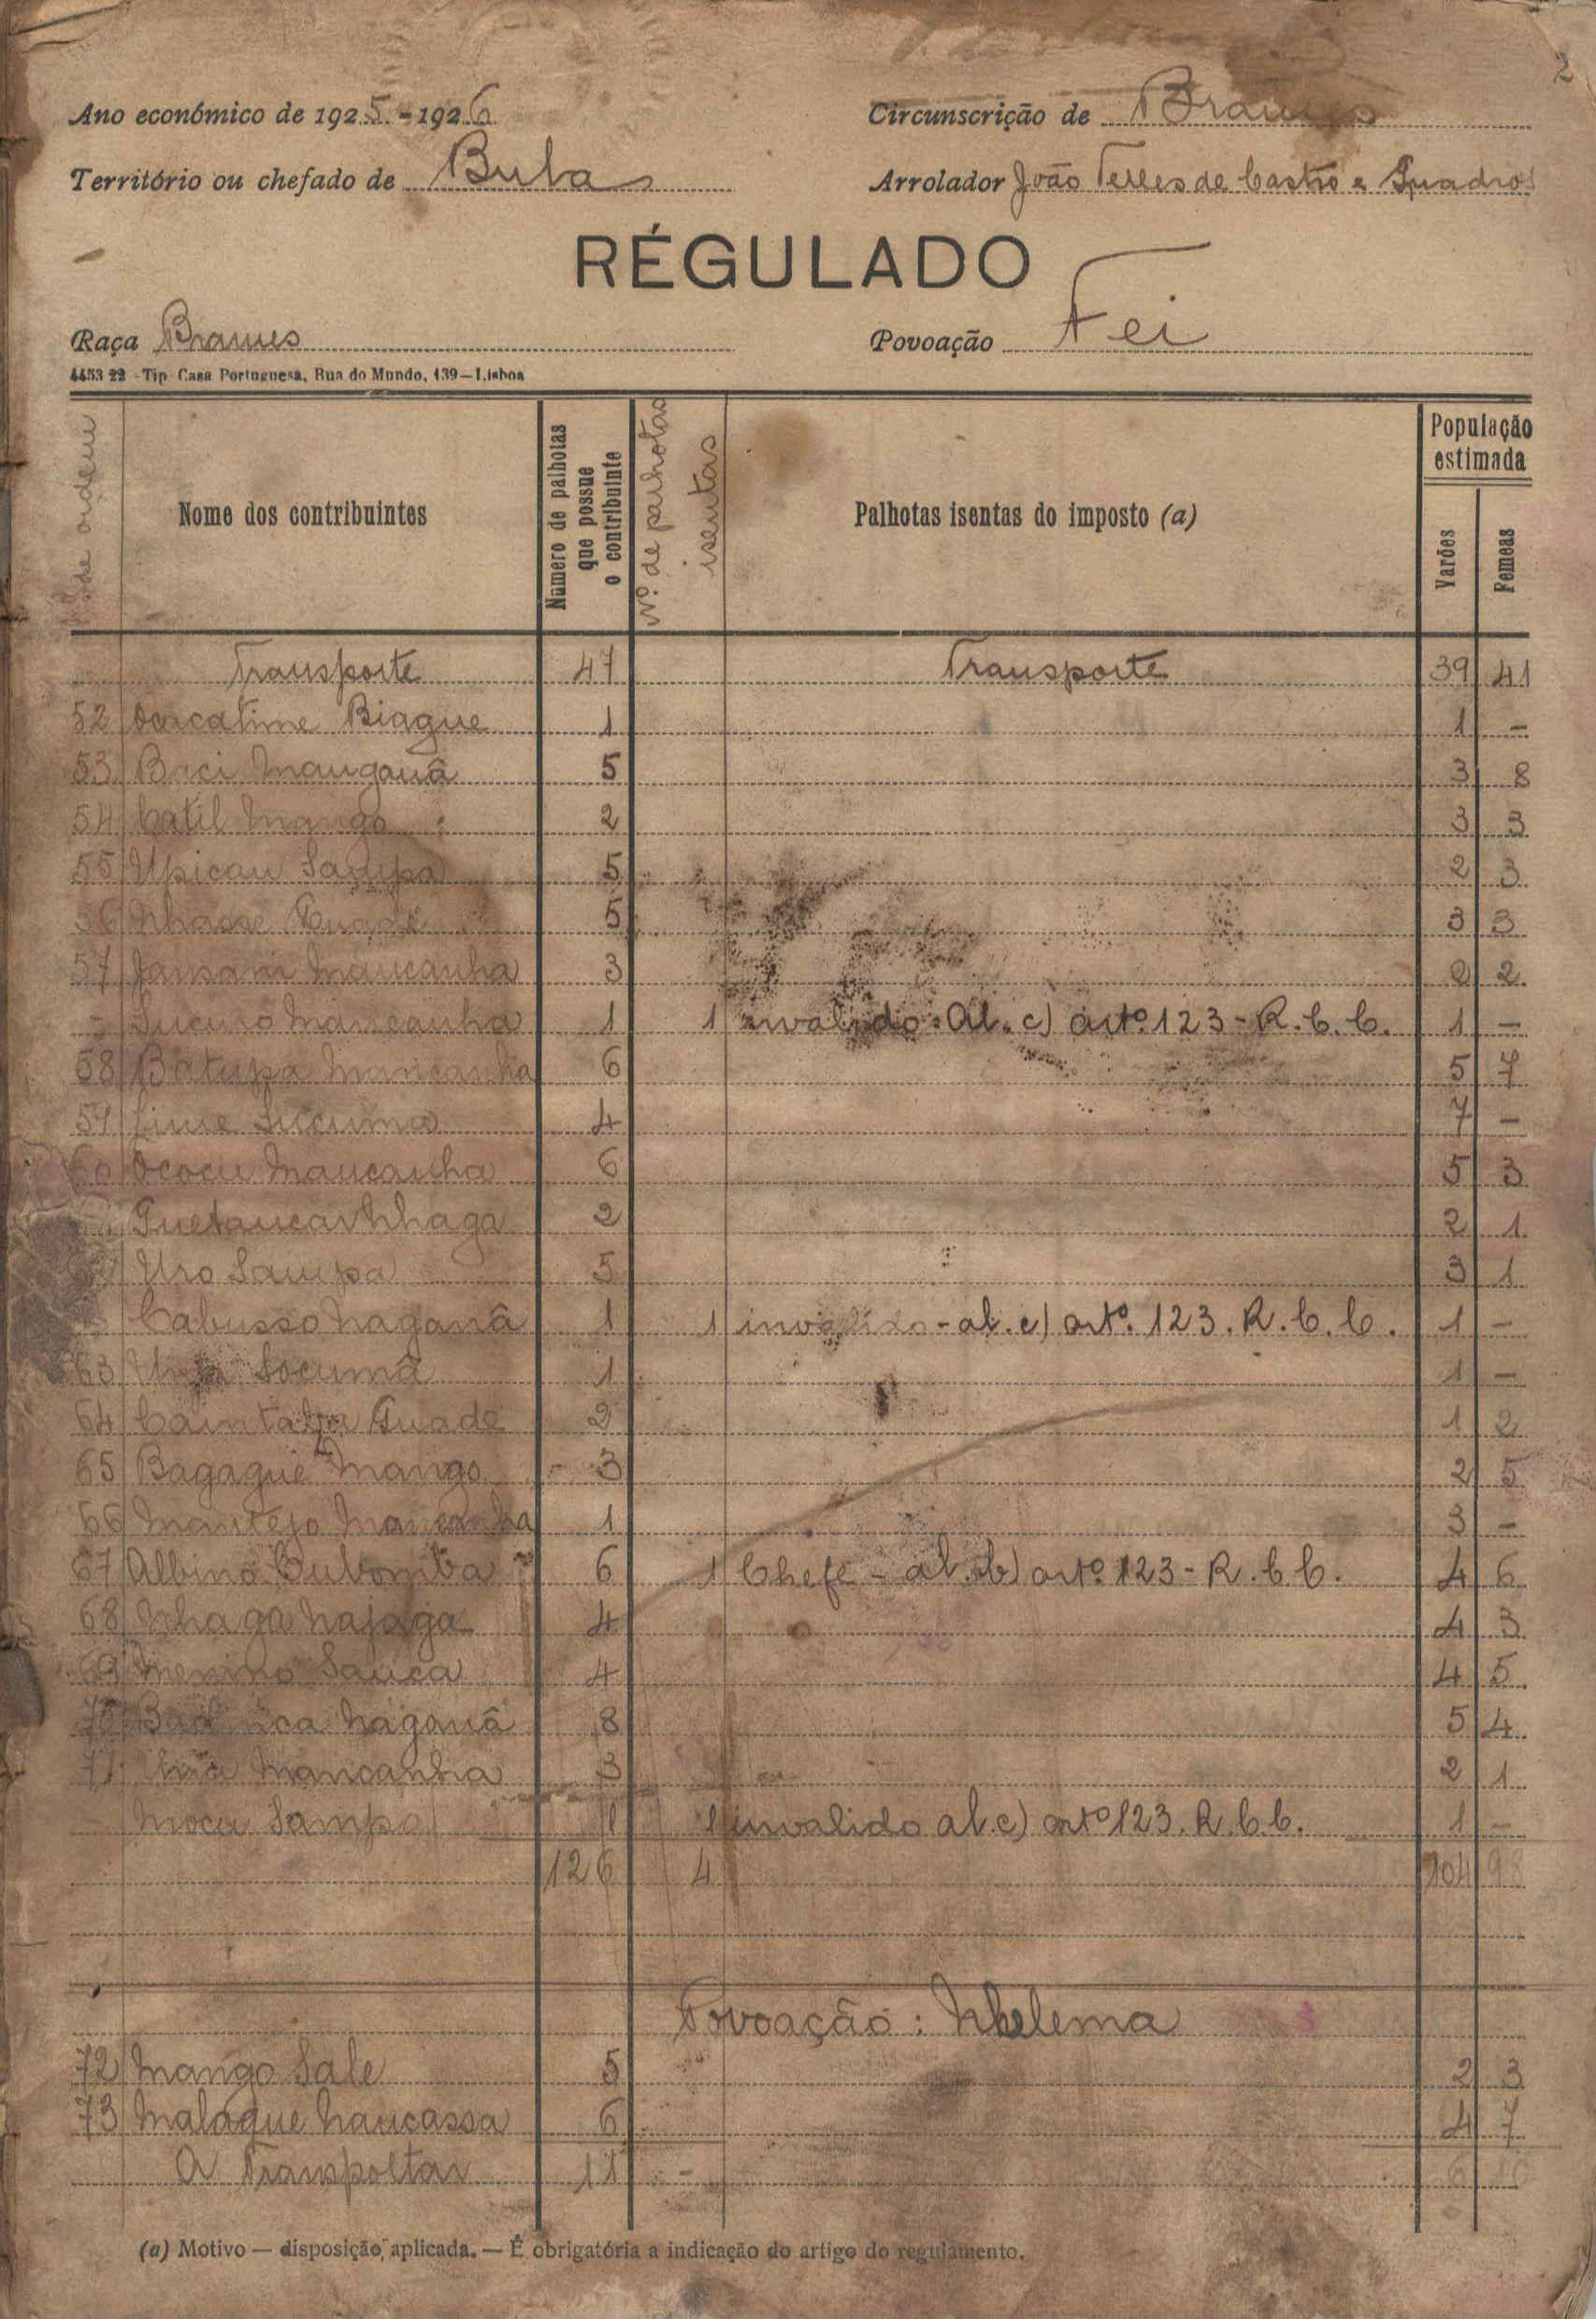 2
Ano económico de 1925-1926 Circunscrição de Brames
Território ou chefado de Bula Arrolador João Telles de Castro e Quadros
RÉGULADO
Raça Brames Povoação Fei
4453 22 - Tip Casa Portuguesa, Rua do Mundo, 139—Lisboa
de ordem Nome dos contribuintes Número de palhotas que possue o contribuinte Nº de palhotas isentas Palhotas isentas do imposto (a) População estimada Varões Femeas
Transporte 47 Transporte 39 41
52 Biague 1 1 -
53 Baci 5 3 8
54 Catil Mango 2 3 3
55 Upicau Sampa 5 2 3
56 5 3 3
57 Jansam Mancanha 3 2 2
- Mancanha 1 1 invalido. Al. c) artº 123 - R. C. C. 1 -
58 Batupa Mancanha 6 5 7
59 4 7 -
60 Ococu Mancanha 6 5 3
Nhaga 2 2 1
Uso Sampa 5 3 1
Cabusso Naganâ 1 1 invalido - al. c) artº. 123. R. C. C. 1 -
63 Socumã 1 1 -
64 Quade 2 1 2
65 Bagague Mango 3 2 5
66 Mantejo Mancanha 1 3 -
67 Albino 6 1 Chefe - al. b) artº 123 - R. C. C. 4 6
68 Nhaga Najaga 4 4 3
69 Menino Sanca 4 4 5
70 Naganâ 8 5 4
71 Mancanha 3 2 1
- Mocu Sampa 1 1 invalido al. c) artº 123. R. C. C. 1 -
126 4 104 98
Povoação: Nhelema
72 Mango Sale 5 2 3
73 Malague Nancassa 6 4 7
A Transportar 11 - 6 10
(a) Motivo — disposição aplicada. — É obrigatória a indicação do artigo do regulamento.